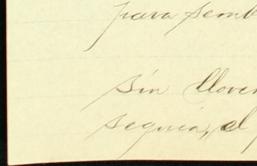 para semb
sin llover
sequia, el